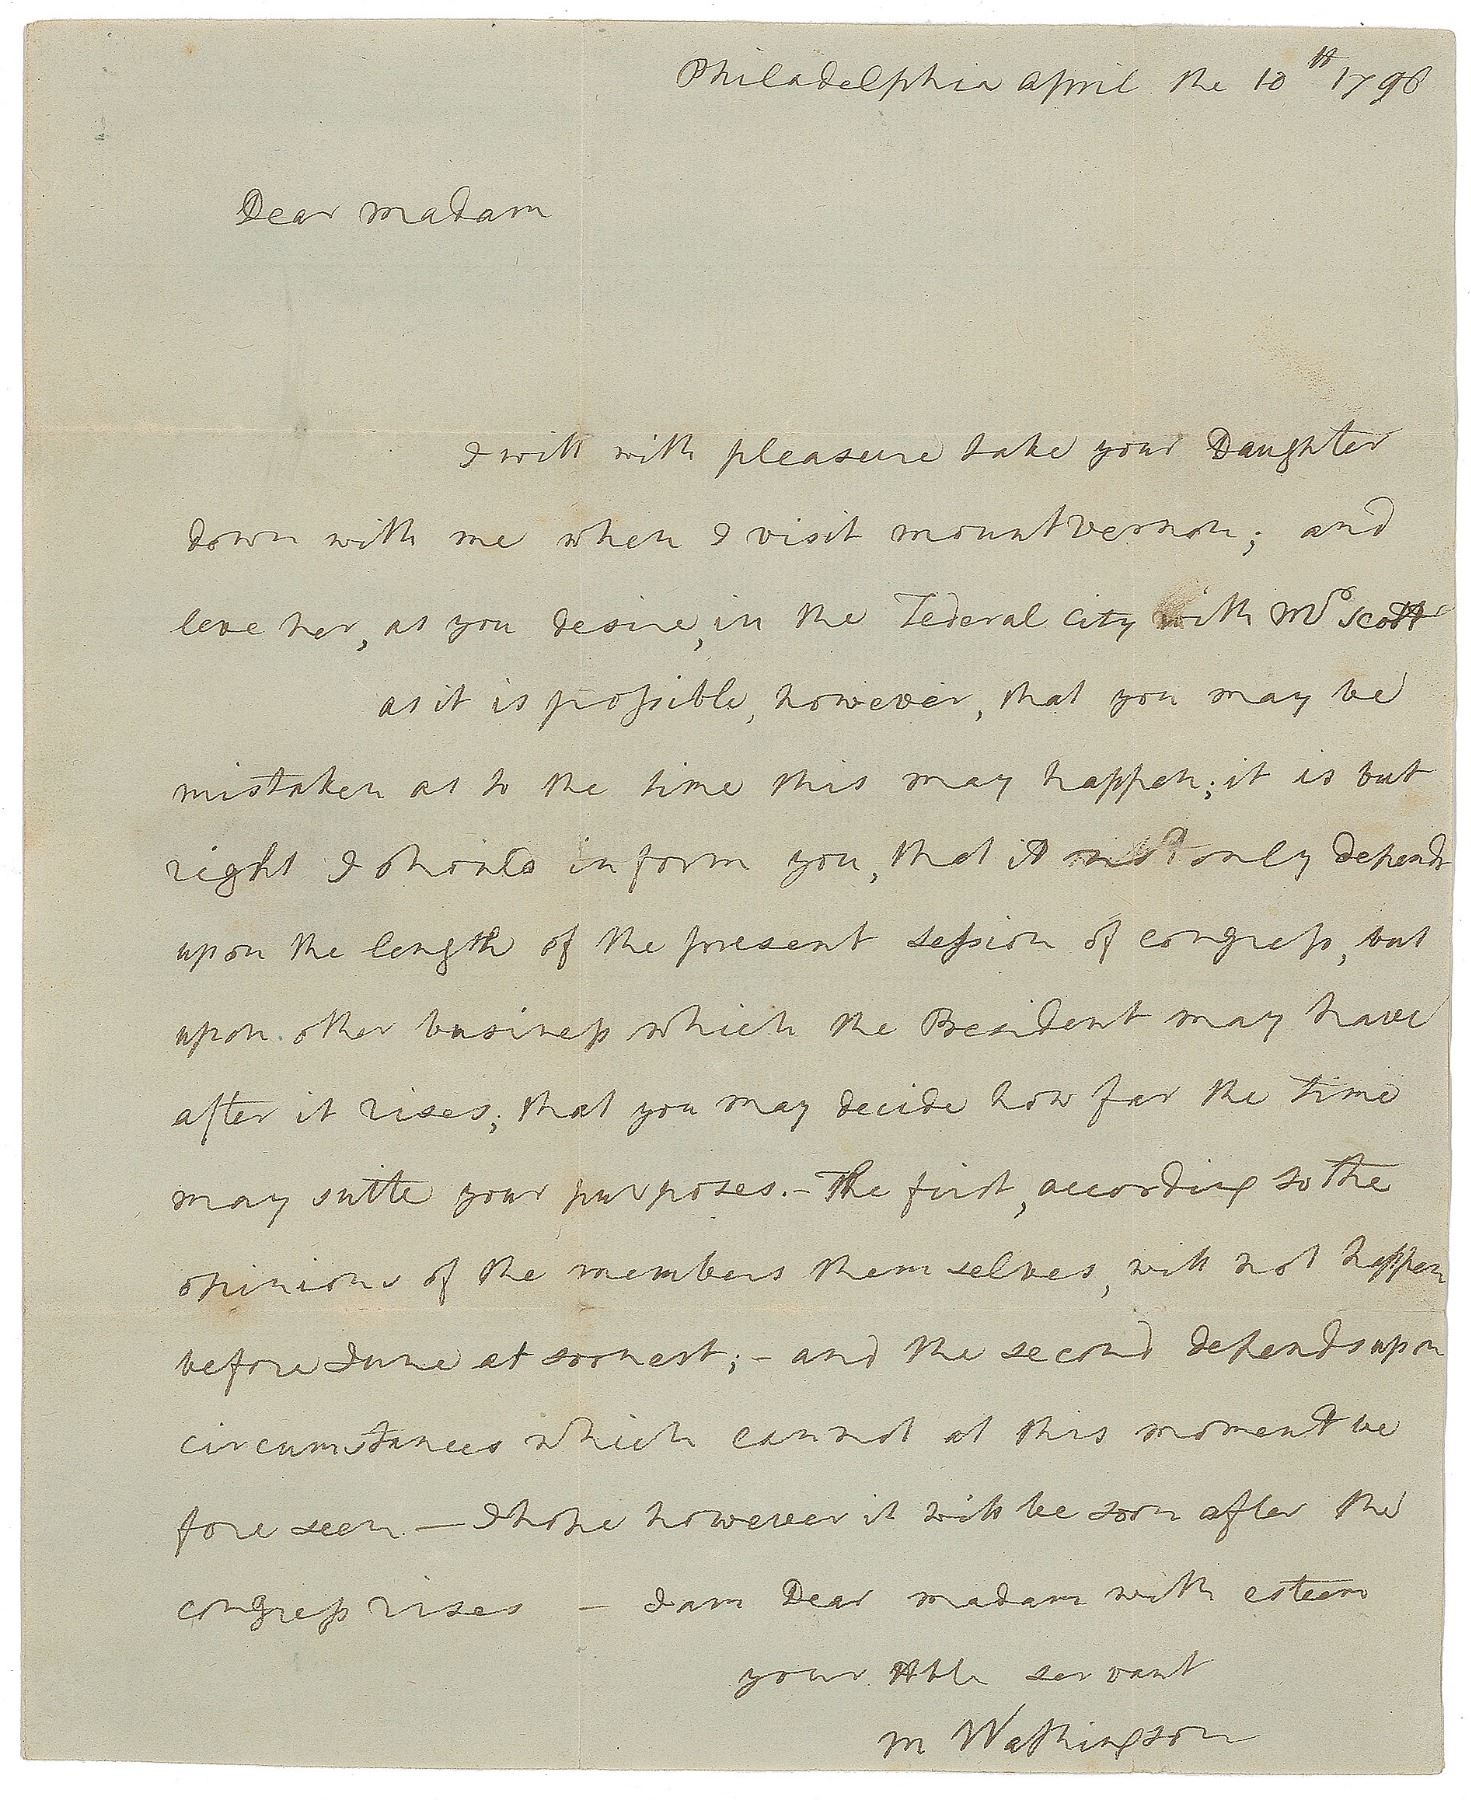 Philadelphia april the 10th 1796
Dear madam
I will with pleasure take your Daughter
down with me when I visit mountvernon; and
leve her, as you desire, in the Federal City with Mrs Scott
as it is possible, however, that you may be
mistaken as to the time this may happen; it is but
right I should inform you, that it not only depends
upon the length of the present session of congress, but
upon other business which the President may have
after it rises; that you may decide how far the time
may sutte your purposes. – The first, according to the
opinions of the members them selves, will not happen
before June at soonest; – and the second depends upon
circumstances which cannot at this moment be
fore seen — I hope however it will be soon after the
congress rises – I am Dear madam with esteem
your Hble servant
M Washington